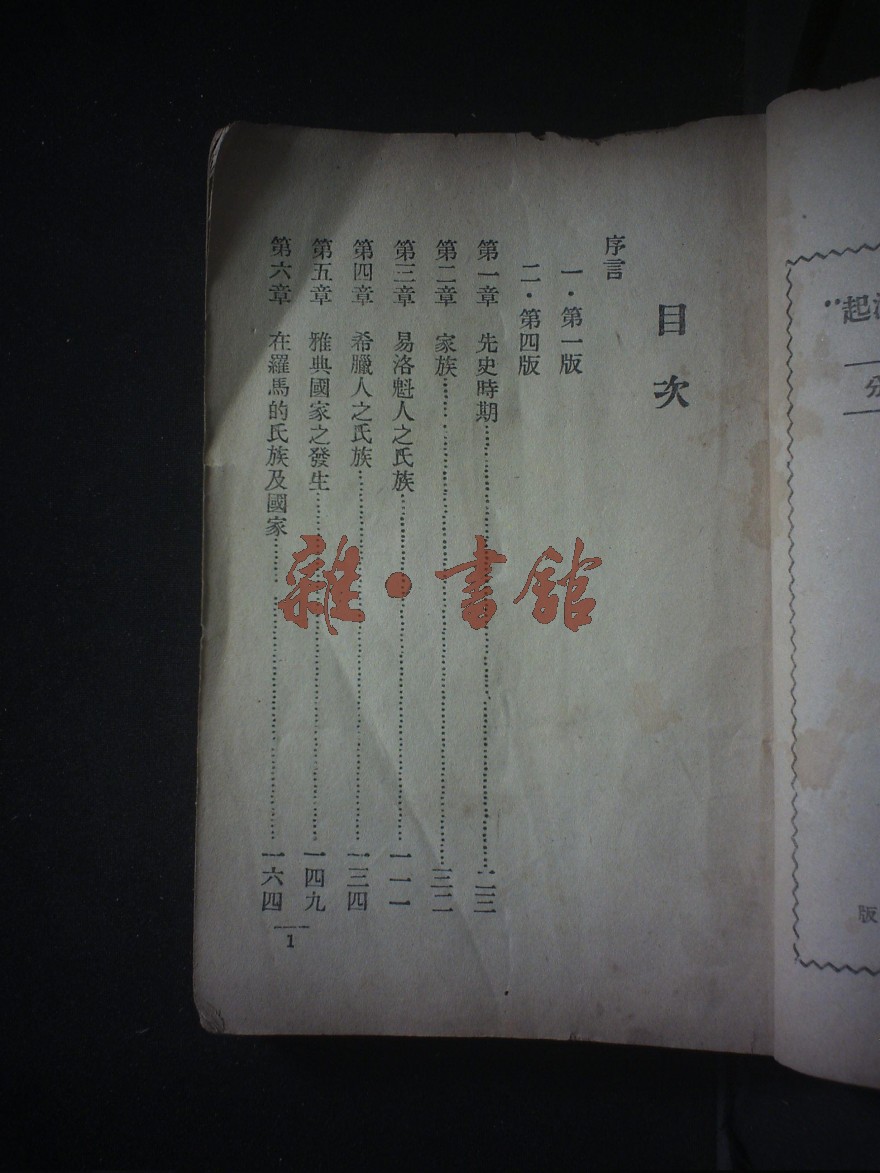 目次
序言
一・第一版
二・第四版
第一章 先史時期……二三
第二章 家族……三二
第三章 易洛魁人之氏族……一一一
第四章 希臘人之氏族……一三四
第五章 雅典國家之發生……一四九
第六章 在羅馬的氏族及國家……一六四
1
雜・書館
起
分
版